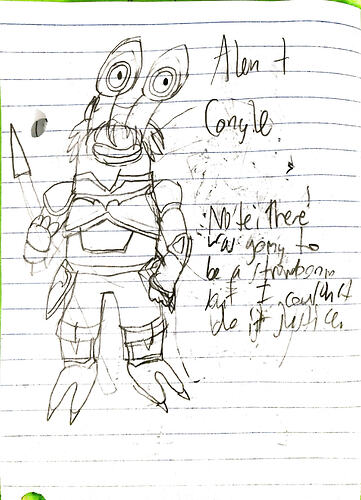 Alen t
Congle
Note: There
was going to
be a
but I couldn't
do it justice.